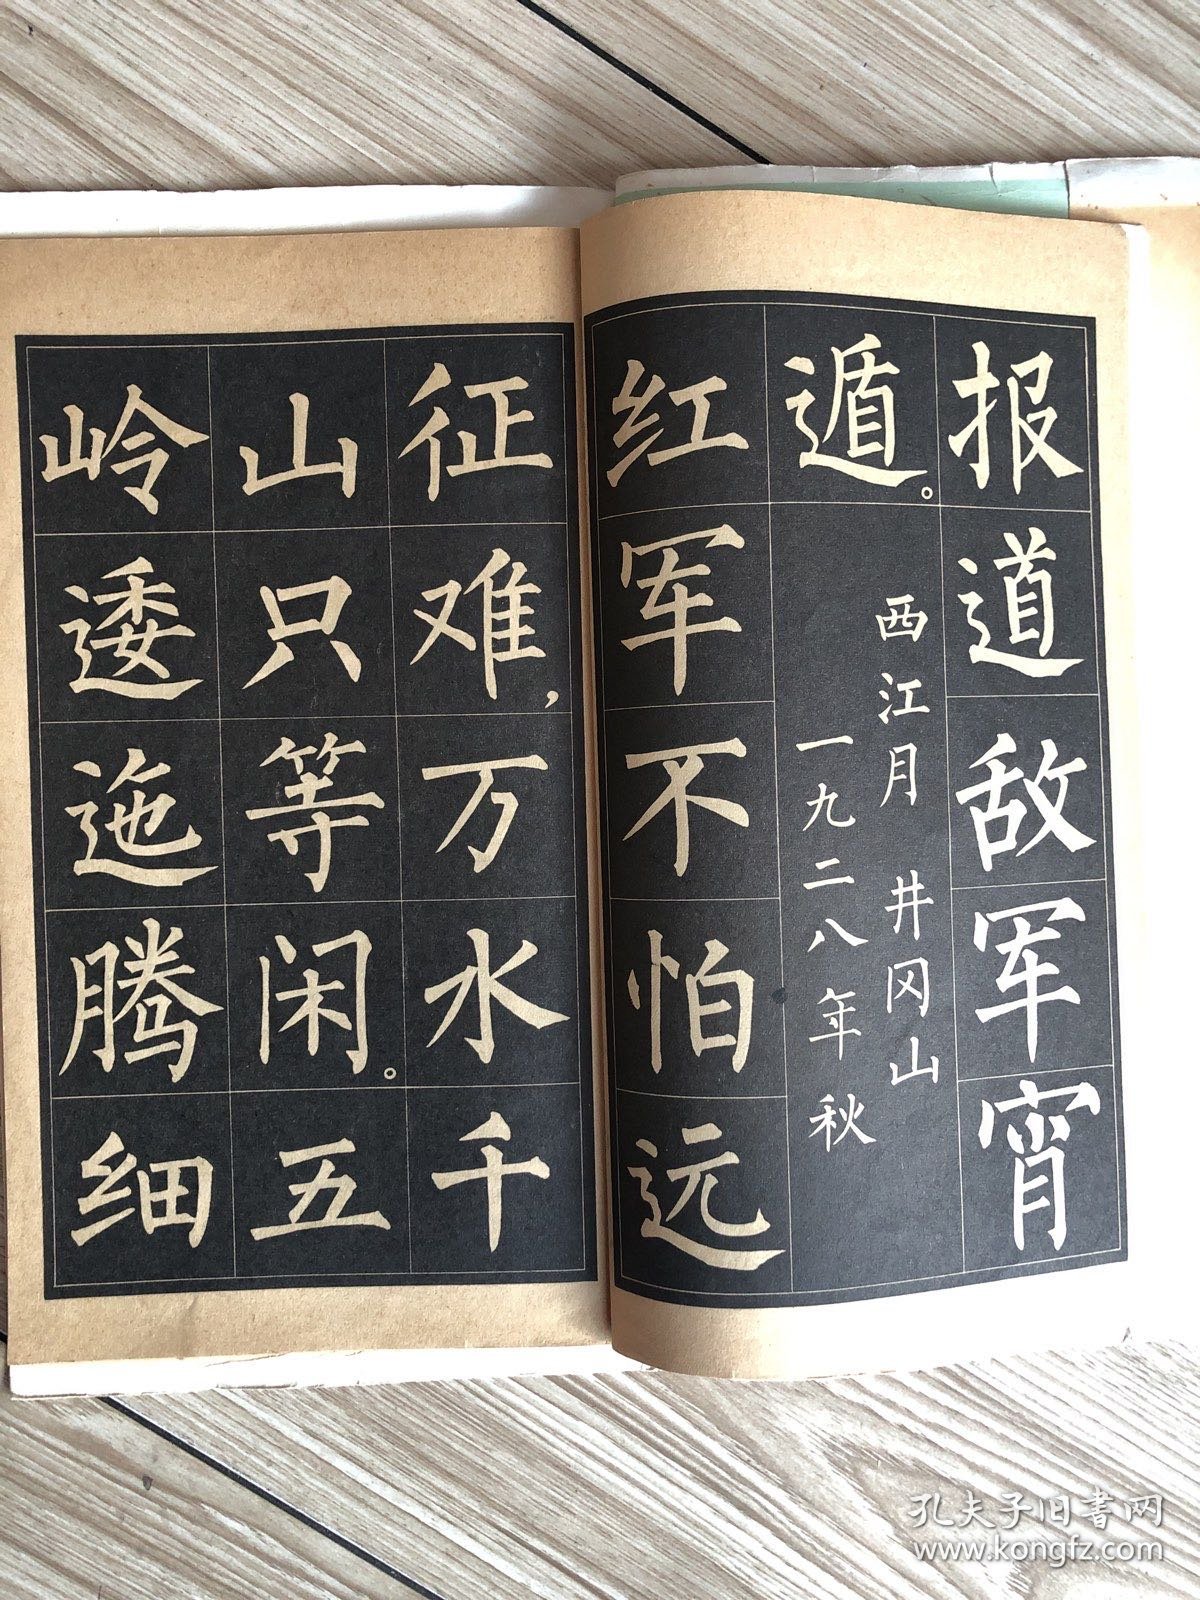 报道敌军宵
遁。
西江月 井冈山
一九二八年秋
红军不怕远
征难，万水千
山只等闲。五
岭逶迤腾细
孔夫子旧书网
www.kongfz.com